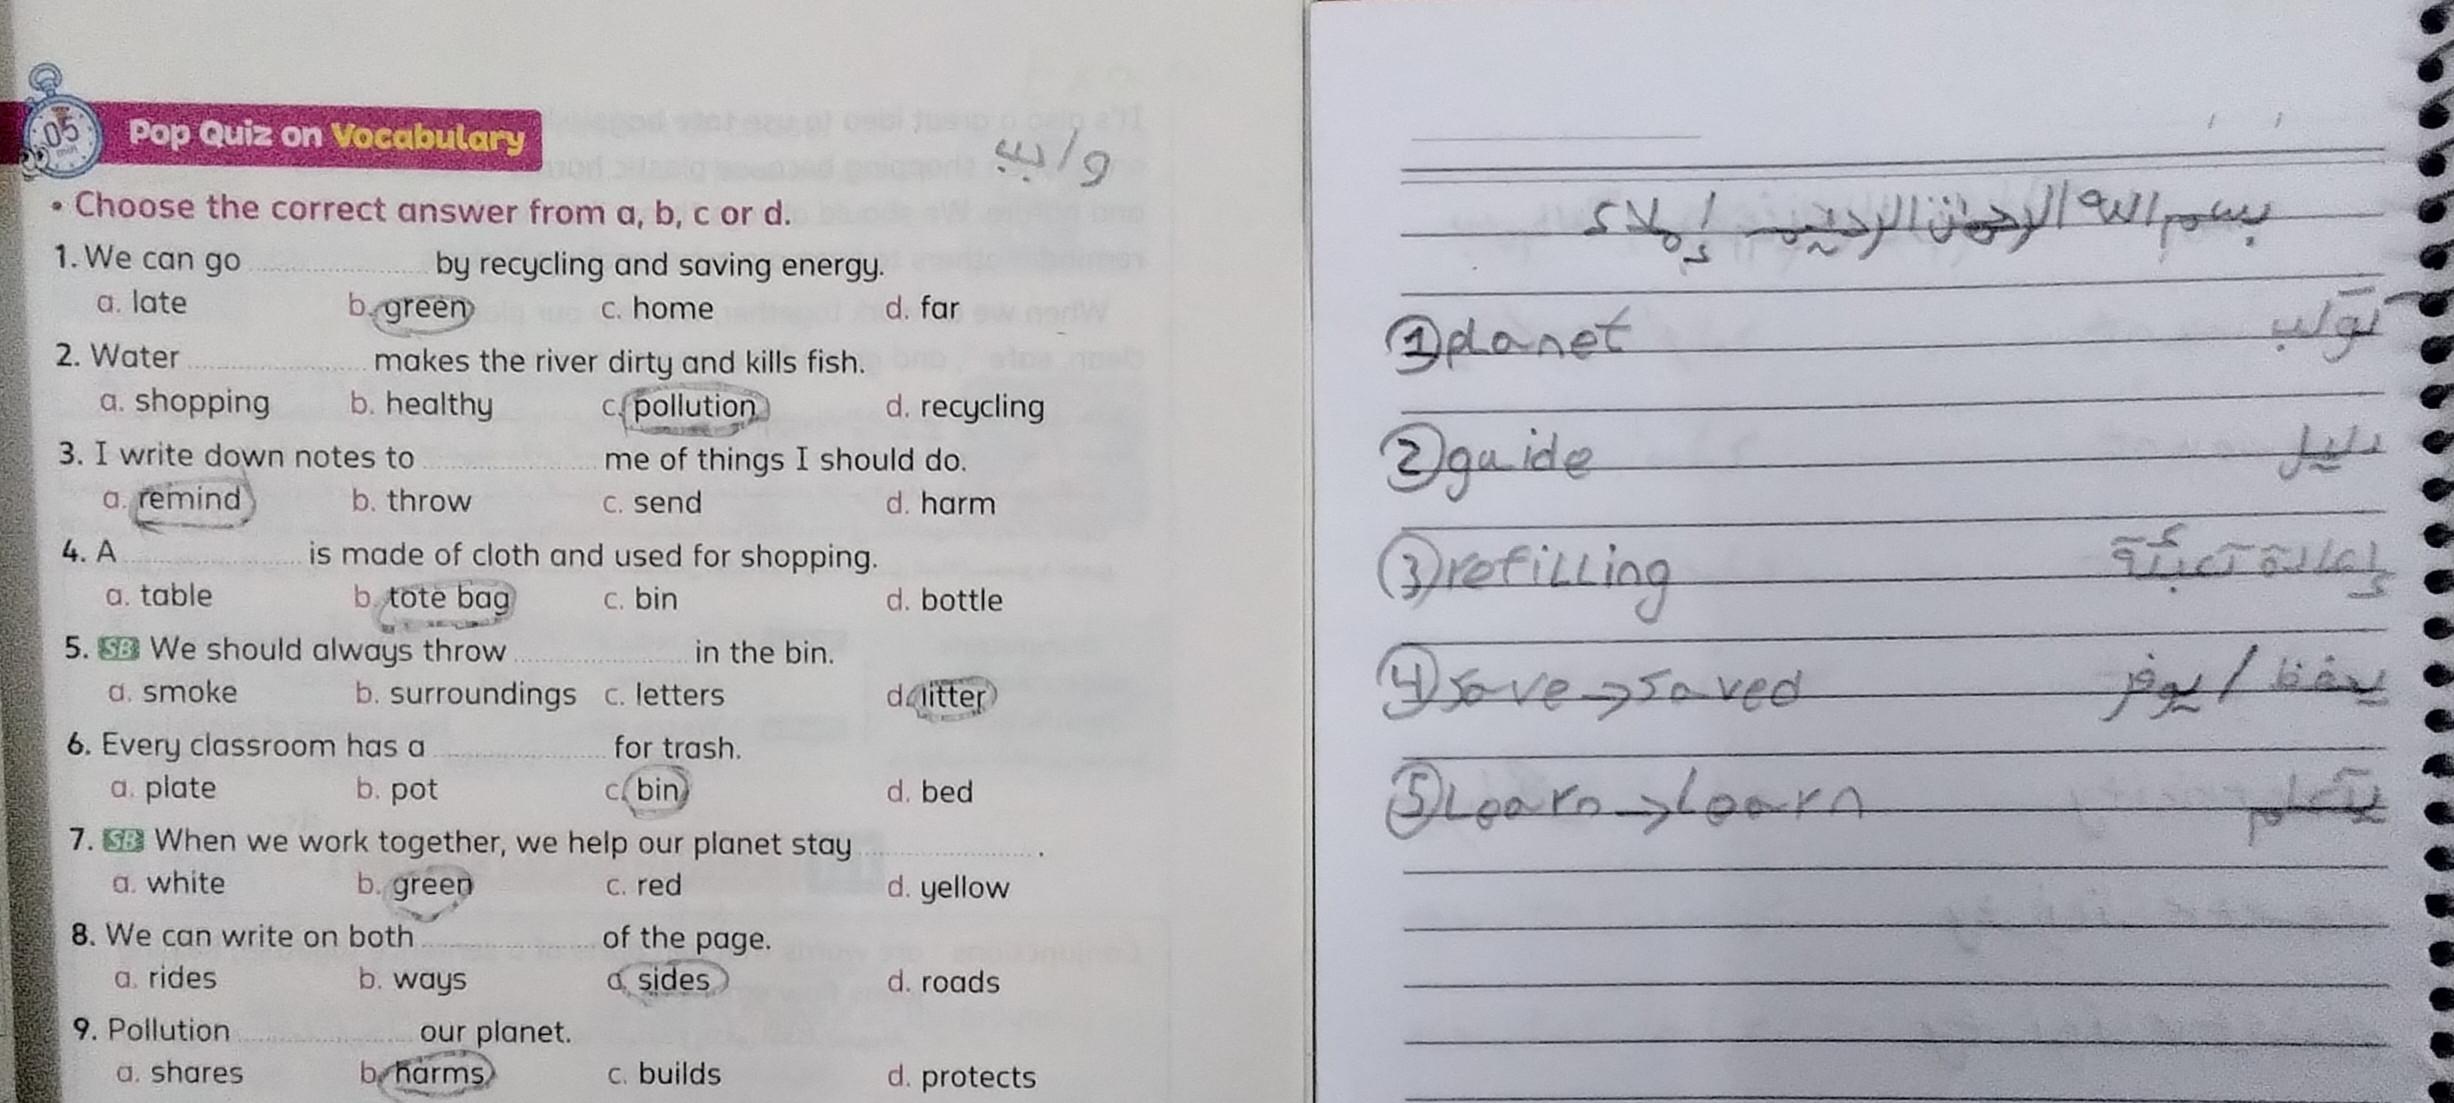 05
min
Pop Quiz on Vocabulary
و/ب
• Choose the correct answer from a, b, c or d.
1. We can go .................... by recycling and saving energy.
a. late b. green c. home d. far
2. Water .................... makes the river dirty and kills fish.
a. shopping b. healthy c. pollution d. recycling
3. I write down notes to .................... me of things I should do.
a. remind b. throw c. send d. harm
4. A .................... is made of cloth and used for shopping.
a. table b. tote bag c. bin d. bottle
5. SB We should always throw .................... in the bin.
a. smoke b. surroundings c. letters d. litter
6. Every classroom has a .................... for trash.
a. plate b. pot c. bin d. bed
7. SB When we work together, we help our planet stay .................... .
a. white b. green c. red d. yellow
8. We can write on both .................... of the page.
a. rides b. ways c. sides d. roads
9. Pollution .................... our planet.
a. shares b. harms c. builds d. protects
بسم الله الرحمن الرحيم إملاء
① planet كوكب
② guide دليل
③ refilling إعادة تعبئة
④ save → saved يحفظ / يوفر
⑤ Learn → Learn يتعلم